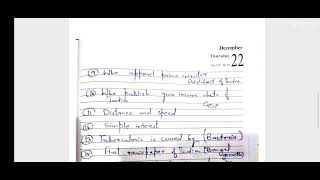 December
Thursday
22
(9) Who appoint prime minister
President of India
(10) Who publish gros income data of
India
CSO
(11) Distance and speed
(12) Simple interest
(13) Tuberculosis is caused by (Bacteria)
(14) First newspaper of India (Bengal